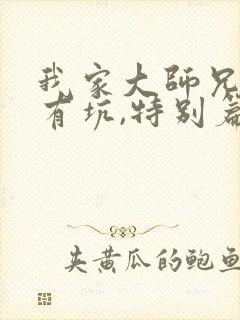 我家大師兄
有坑,特别篇
夹黄瓜的鲍鱼